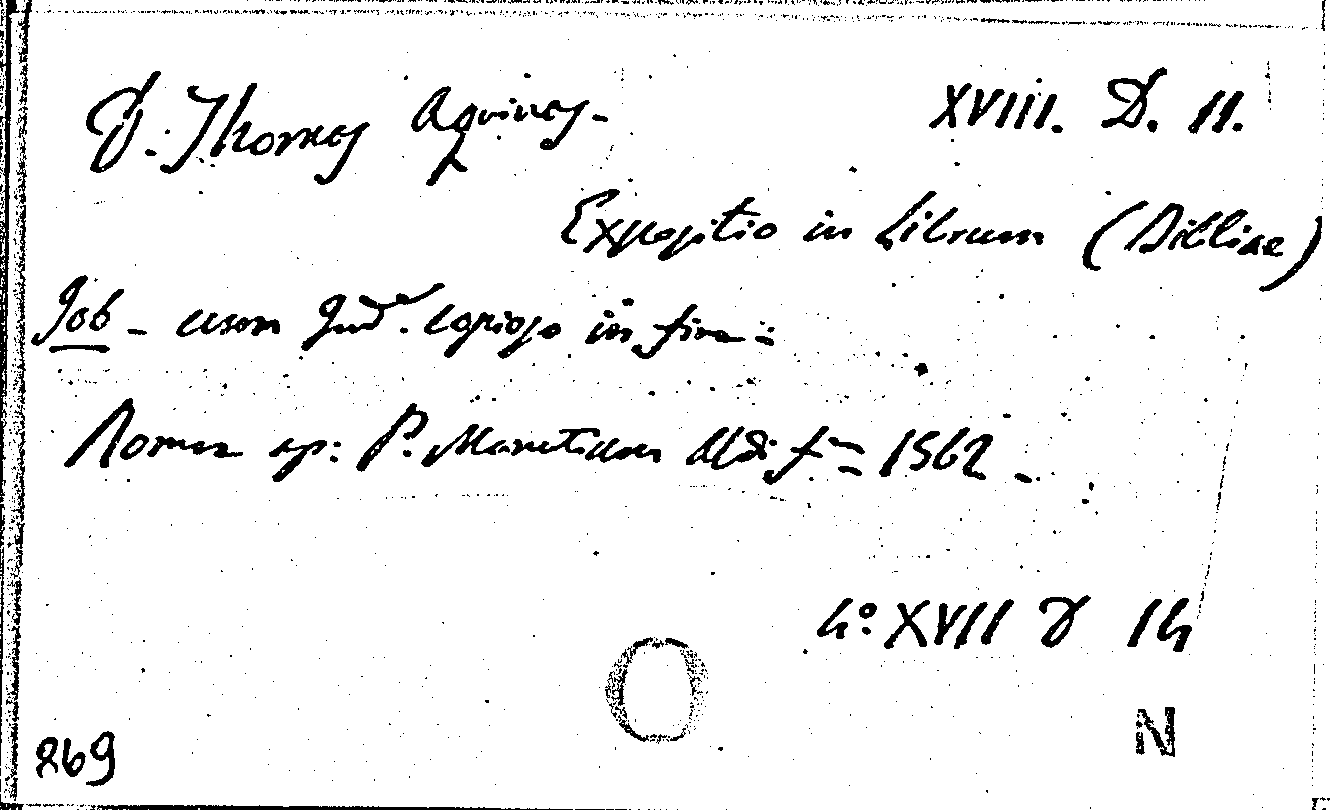 D. Thomas Aquinas - XVIII. D. 11.
Expositio in Librum (Bibliae)
Job - cum Ind. copioso in fine:
Romae ap: P. Manutium Aldi f = 1562 -
4º XVII D 14
N
269